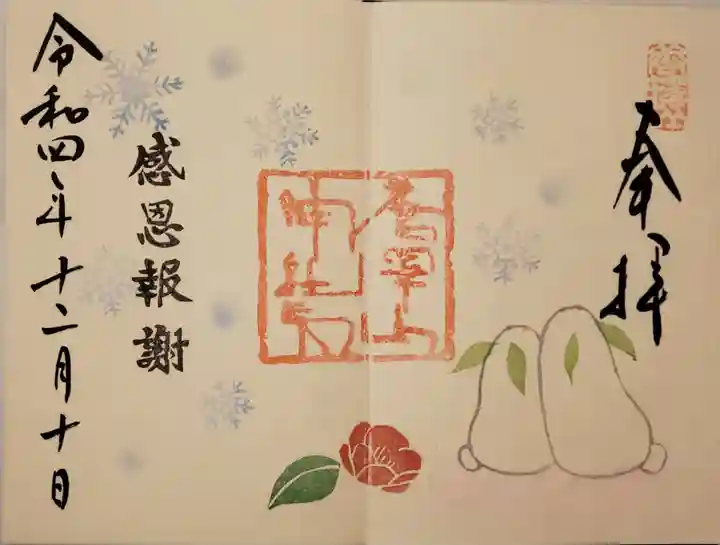 奉拝
唐澤山
神社印
感恩報謝
令和四年十二月十日